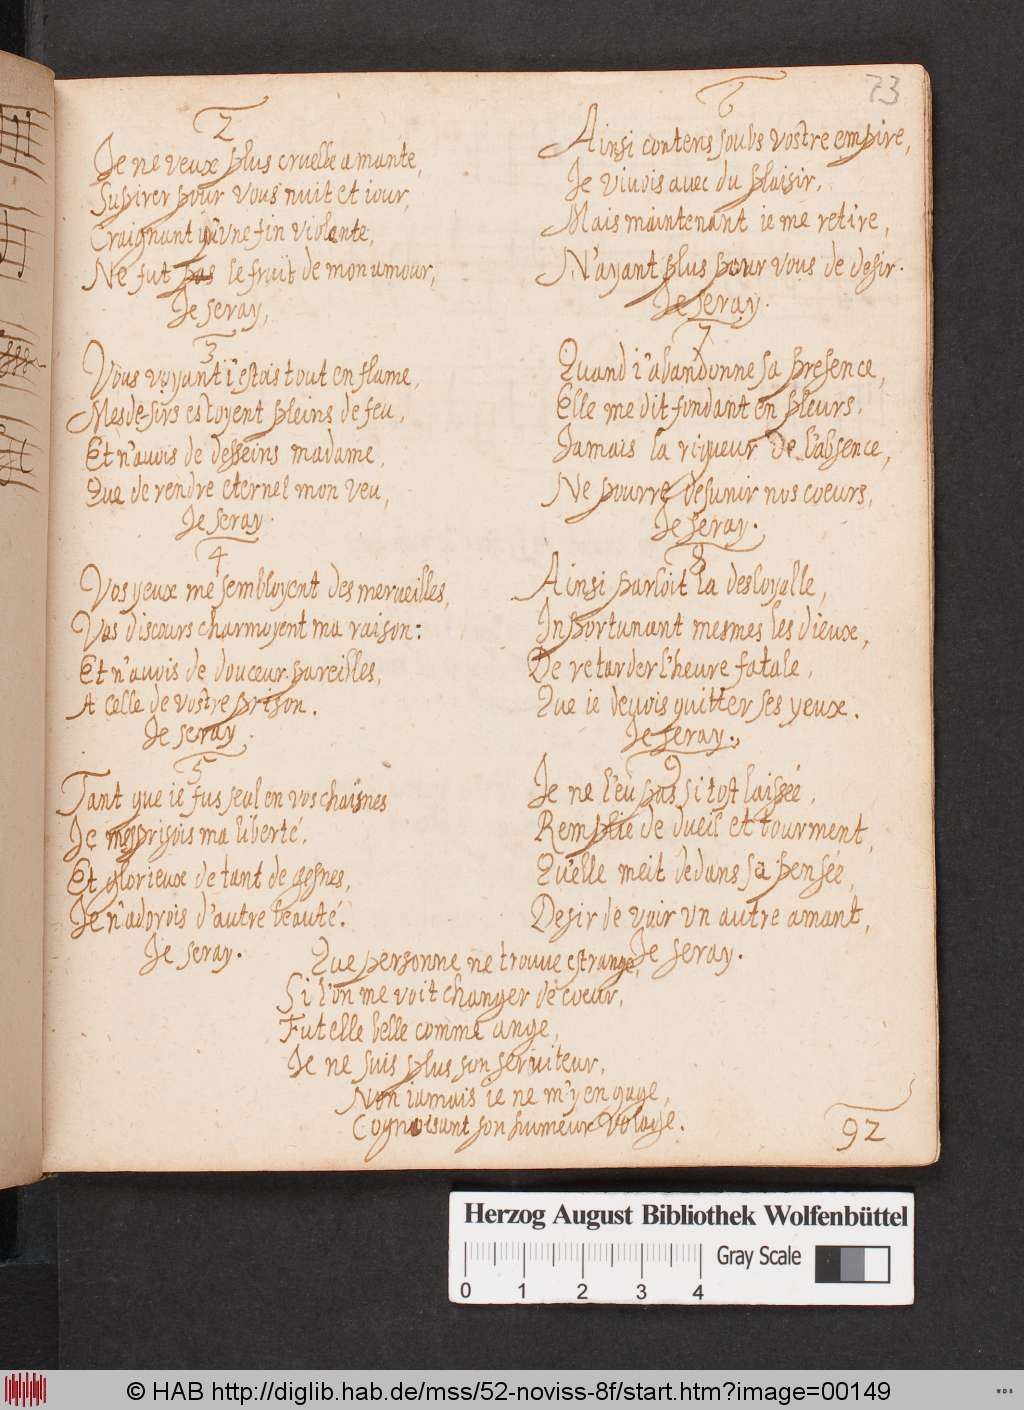 73
2
Je ne veux plus cruelle amante,
Supirer pour vous nuit et iour,
Craignant qu'vne fin violente,
Ne fut pas le fruit de mon amour,
Je seray,
3
Vous voyant i'estois tout en flame,
Mes desirs estoyent pleins de feu,
Et n'auois de desseins madame,
Que de rendre eternel mon veu,
Je seray.
4
Vos yeux me sembloyent des merueilles,
Vos discours charmoyent ma raison:
Et n'auois de douceur pareilles,
A celle de vostre prison.
Je seray.
5
Tant que ie fus seul en vos chaisnes
Je mesprisois ma liberté.
Et glorieux de tant de gesnes,
Je n'adorois d'autre beauté.
Je seray.
6
Ainsi contens soubs vostre empire,
Je viuois auec du plaisir,
Mais maintenant ie me retire,
N'ayant plus pour vous de desir.
Je seray.
7
Quand i'abandonne sa presence,
Elle me dit fondant en pleurs,
Jamais la rigueur de l'absence,
Ne pourra desunir nos coeurs,
Je seray.
8
Ainsi parloit la desloyalle,
Inportunant mesmes les dieux,
De retarder l'heure fatale,
Que ie deuois quitter ses yeux.
Je seray.
9
Je ne l'eu pas si tost laissée,
Remplie de dueil et tourment,
Qu'elle meit dedans sa pensée,
Desir de voir vn autre amant,
Je seray.
Que personne ne trouue estrange,
Si l'on me voit changer de coeur,
Fut elle belle comme ange,
Je ne suis plus son seruiteur,
Non iamais ie ne m'y engage,
Cognoisant son humeur volage.
92
Herzog August Bibliothek Wolfenbüttel
Gray Scale
0 1 2 3 4
© HAB http://diglib.hab.de/mss/52-noviss-8f/start.htm?image=00149